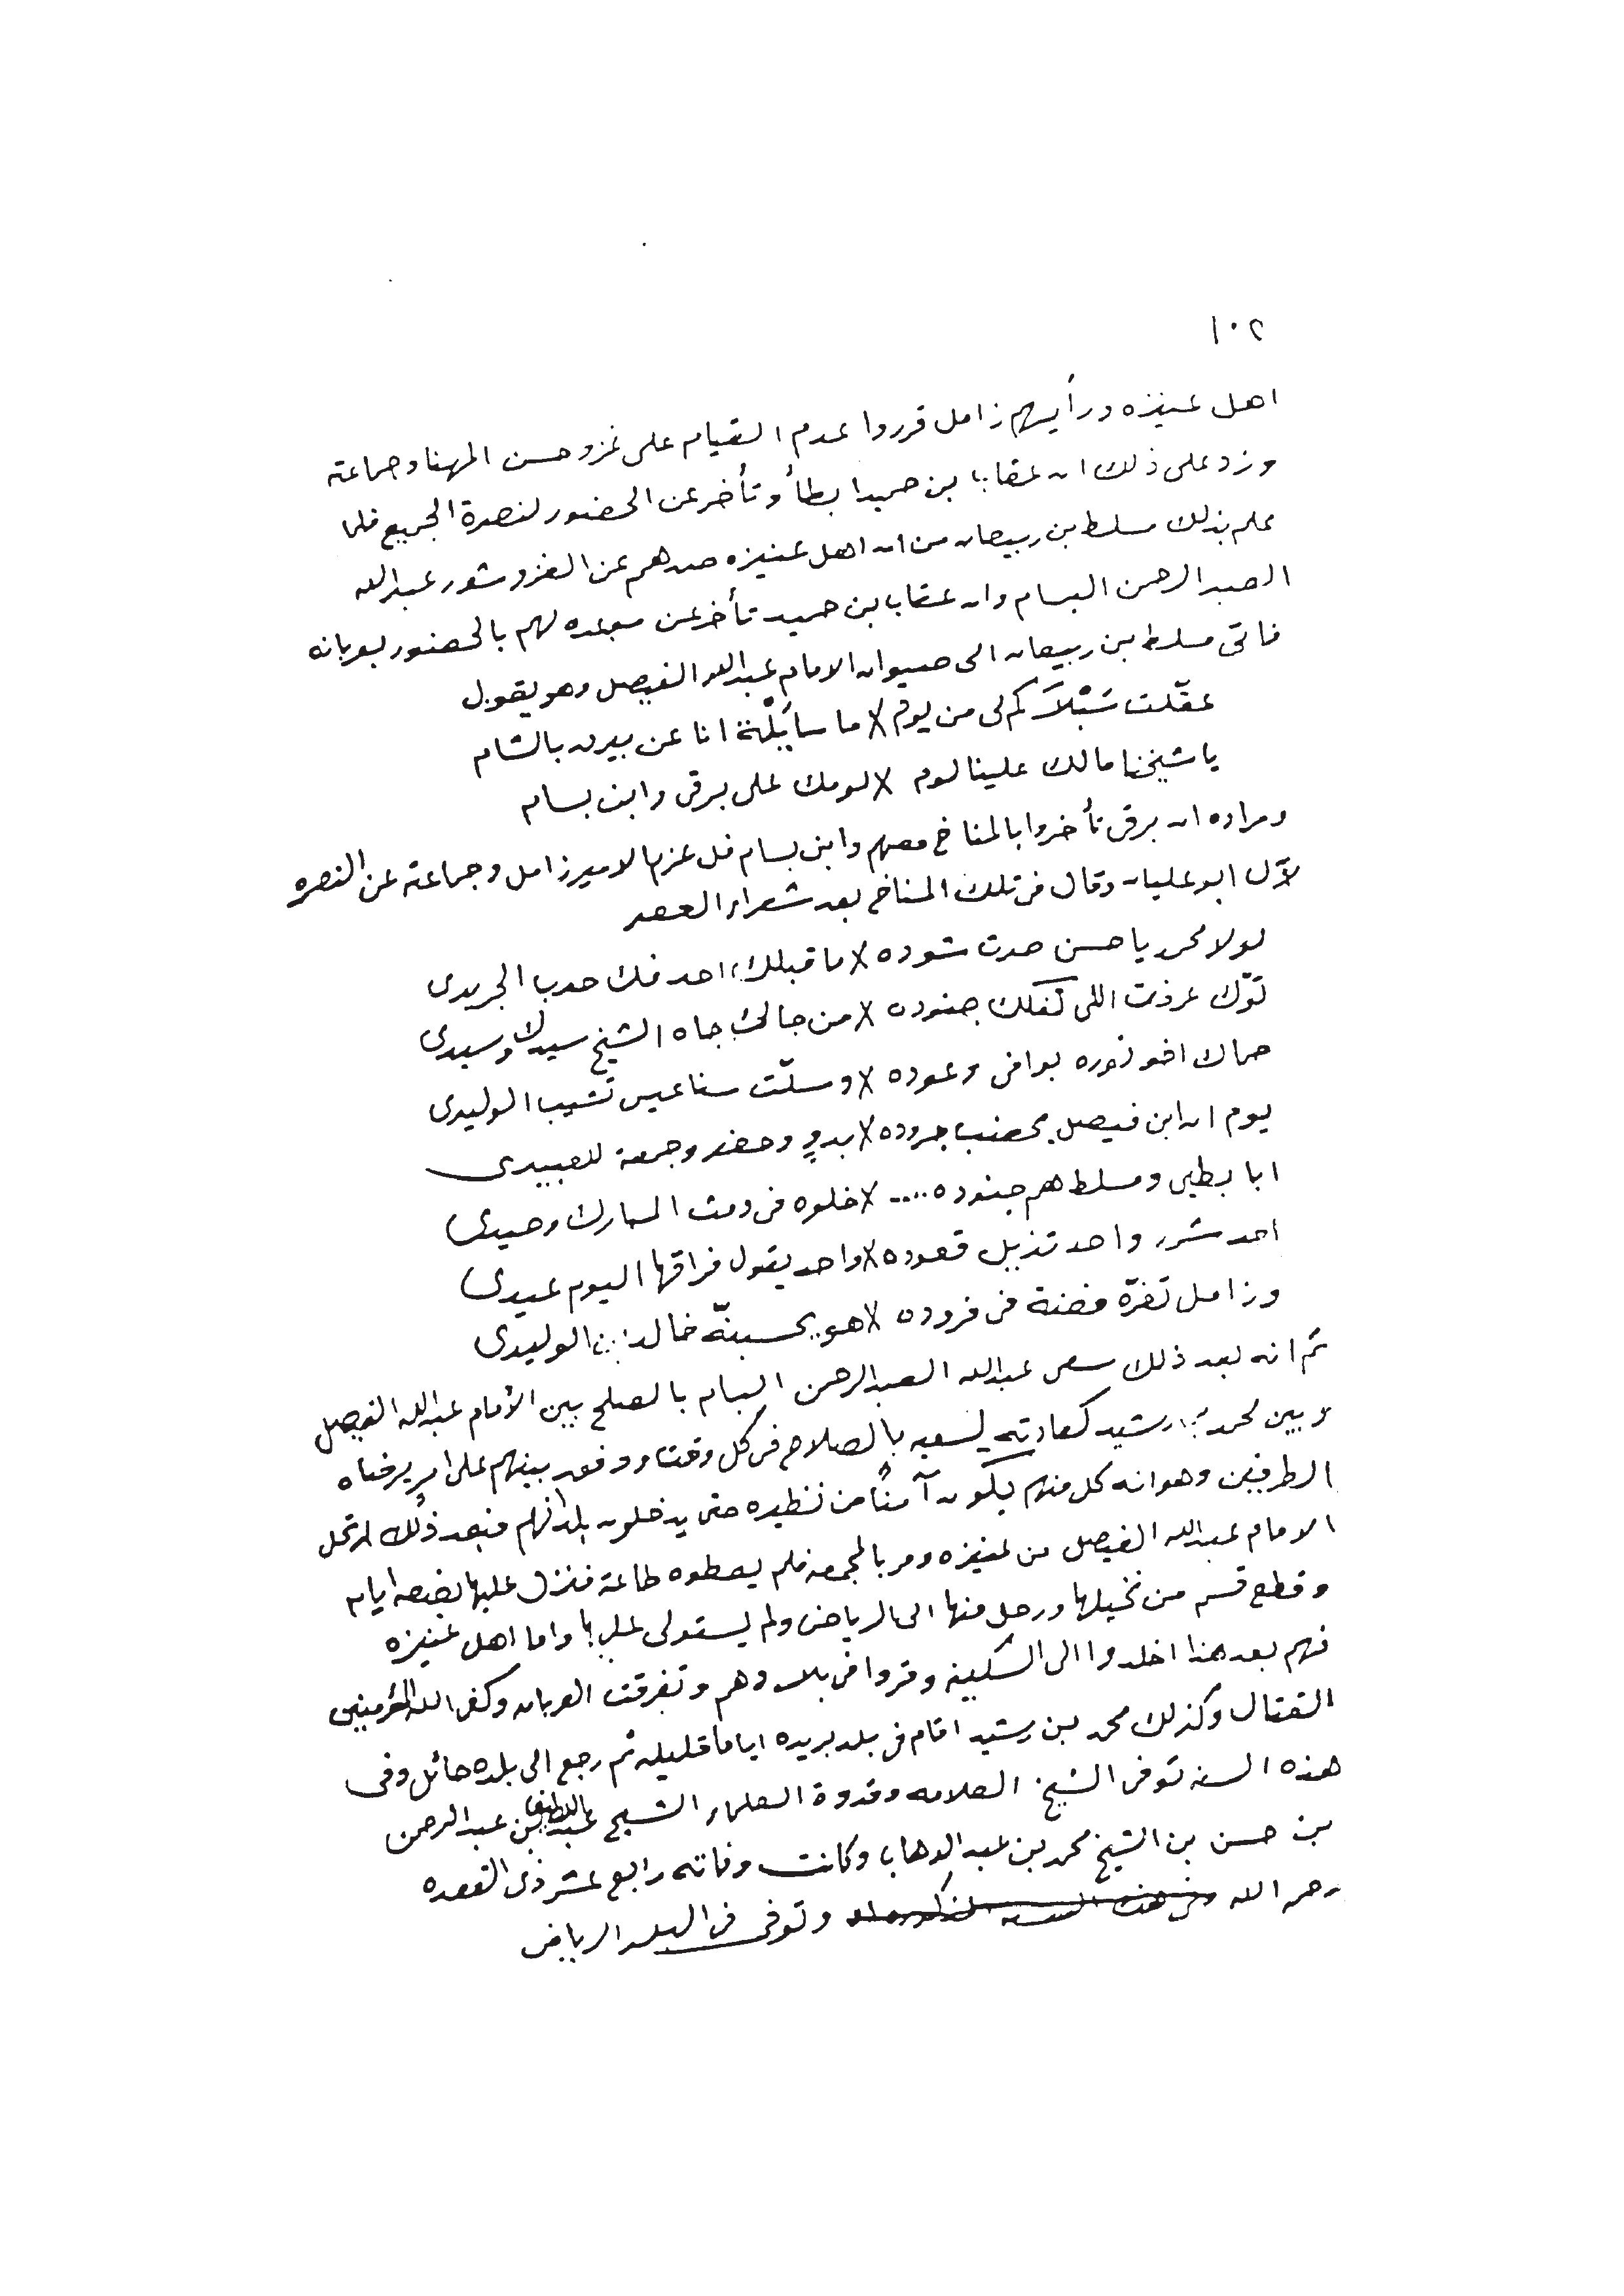 ١٠٢
اهل عنيزه ورأيهم زامل قرروا عدم القيام على غزو حسن المهنا وجماعته
وزد على ذلك ان عقاب بن حميد ابطأ وتأخر عن الحضور لنصرة الجميع فلما
علم بذلك مسلط بن ربيعان من ان اهل عنيزه صدهم عن الغزو شور عبدالله
العبدالرحمن البسام وان عقاب بن حميد تأخر عن موعده لهم بالحضور بعربانه
فاتى مسلط بن ربيعان الى صيوان الامام عبدالله الفيصل وهو يقول
عقّلت كم لى من يوم لا ما انا عن بالشام
يا شيخنا مالك علينا لوم لا لومك على برقى وابن بسام
ومراده ان برقى تأخروا بالمناخ معهم وابن بسام فل عزم الامير زامل وجماعته عن النصره
لآل ابو عليان وقال فى تلك المناخ بعد شعراء العصر
لولا محمد يا حسن صرت شوده لا ما قبلك احد فك حدب الجريدى
توّك عرفت اللى كفلك جنوده لا من جالك جاه الشيخ سيدك وسيدى
حماك اخو نوره بوافى وعوده لا وسلّت سناعيس تشيب الوليدى
يوم ان ابن فيصل جروده لا بدوٍ وحضر وجمعة للعبيدى
ابا بطين ومسلط هم جنوده .... لا خلوه فى المبارك وحيدى
احد شرر واحد تذبل قعوده لا واحد يقول فراقها اليوم عيدى
وزامل تغرّه فضة فى فروده لا هو يحسبنّه خالد بن الوليدى
ثم انه بعد ذلك سعى عبدالله العبدالرحمن البسام بالصلح بين الأمام عبدالله الفيصل
وبين محمد بن رشيد كعادته لسعيه بالصلاح فى كل وقت ووفق بينهم على امر يرضاه
الطرفين وهو انه كل منهم يكون آمنًا من نظيره حتى يدخلون بلدانهم فبعد ذلك ارتحل
الامام عبدالله الفيصل من عنيزه ومر بالمجمعه فلم يعطوه طاعة فنزل عليها بضعه ايام
وقطع قسم من نخيلها ورحل منها الى الرياض ولم يستولى عليها واما اهل عنيزه
فهم بعد هذا اخلدوا الى السكينه وقروا فى بلادهم وتفرقت العربان وكفى الله المؤمنين
القتال وكذلك محمد بن رشيد اقام فى بلد بريده اياما قليله ثم رجع الى بلده حائل وفى
هذه السنه توفى الشيخ العلامه وقدوة العلماء الشيخ عبداللطيف بن عبدالرحمن
بن حسن بن الشيخ محمد بن عبدالوهاب وكانت وفاته رابع عشر ذى القعده
رحمه الله وفى هذه السنه المذكوره وتوفى فى البلد الرياض